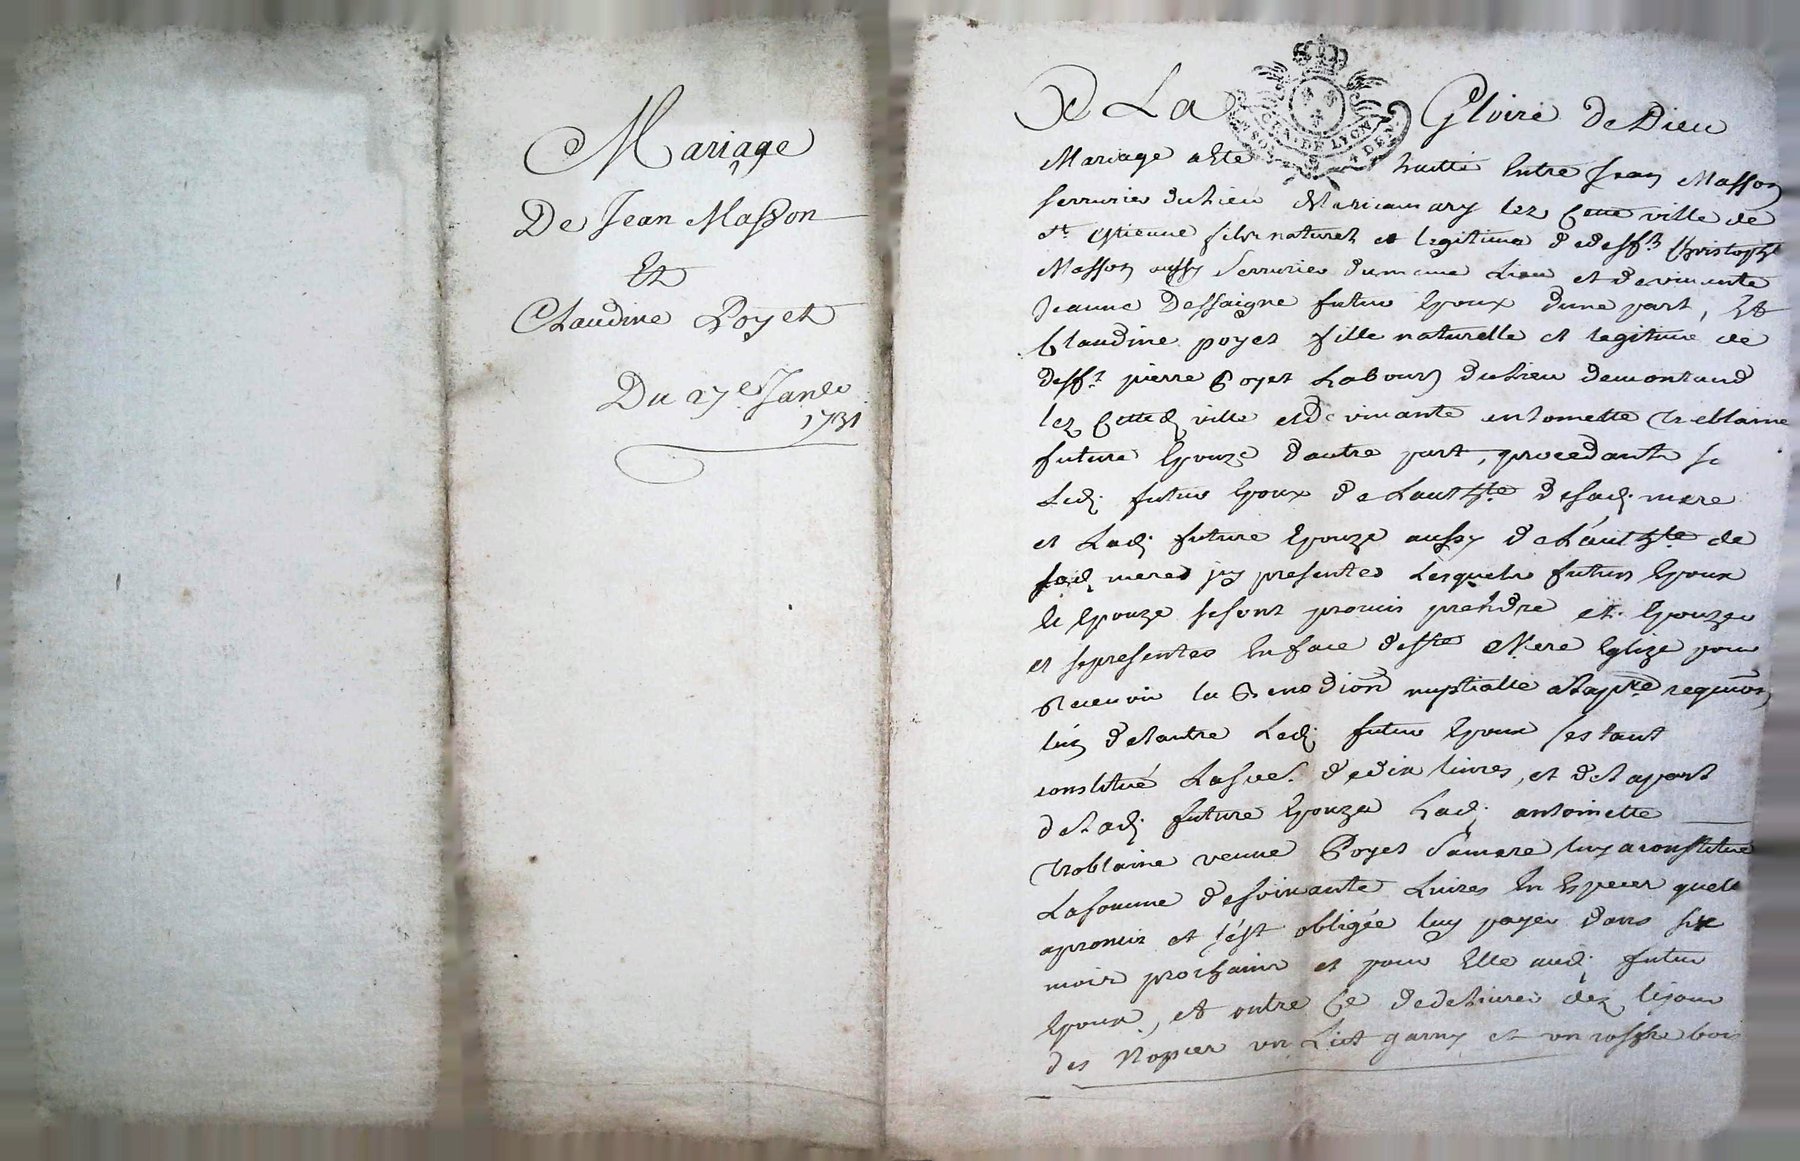 Mariage
De Jean Masson
Et
Claudine Poyet
Du 27e Janv.
1731
A La Gloire De Dieu
GEN. DE LYON
4 DEN
Mariage a Este traitté Entre Jean Masson
serrurier du lieu lez Cette ville de
st. Estienne fils naturel et legitime de deff.t Christophle
Masson aussy Serrurier du mesme Lieu et de vivante
Jeanne Dessaigne futur Epoux d'une part, Et
Claudine poyet fille naturelle et legitime de
deff.t pierre Poyet Labour du Lieu de montaud
lez Cette d. ville et De vivante antoinette treblaine
future Epouze d'autre part, procedants
Led. futur Epoux de L'autthte de sad. mere
et Lad. future Epouze aussy de L'autthte de
sad. mere jcy presentes Lesquels futurs Epoux
Et Epouze se sont promis prendre et Epouzer
et se presenter En face de ste Mere Eglize pour
Recevoir la Benediõn nuptialle a la pre requisiõn
l'un de L'autre Led. futur Epoux s'estant
constitué La so.e de dix livres, et de La part
de Lad. future Epouze Lad. antoinette
treblaine veuve Poyet Sa mere luy a constitué
La somme de soixante Livres En Especes quelle
a promis et s'est obligée luy payer dans six
mois prochains et pour Elle aud. futur
Epoux, et outre Ce de delivrer dez le jour
des Nopces un Lict garny et un coffre bois